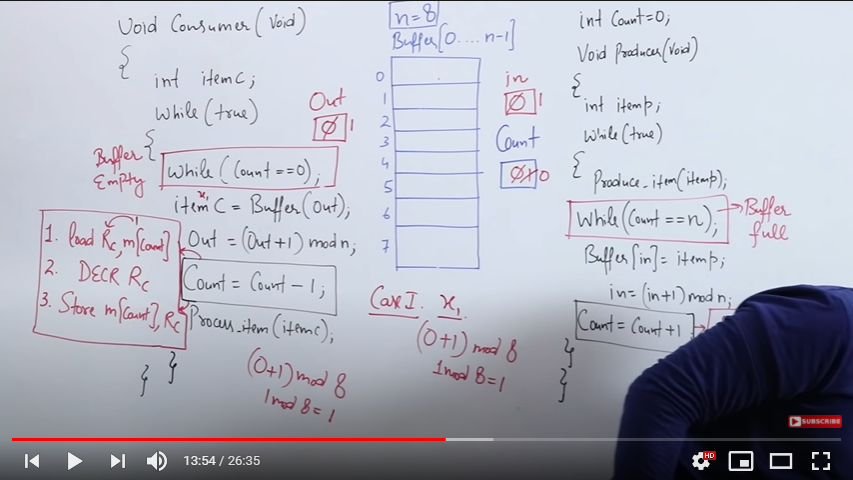 Void Consumer(Void)
{
int itemc;
while(true)
{
Buffer
Empty
while(Count==0);
x1
itemC = Buffer(Out);
Out = (Out+1)mod n;
Count = Count - 1;
Process_item(itemc);
}
}
1
1. load Rc, m[count]
2. DECR Rc
3. Store m[count], Rc
(0+1) mod 8
1 mod 8 = 1
Out
0 1
n=8
Buffer[0....n-1]
0
1
2
3
4
5
6
7
in
0 1
Count
0 1 0
Case I. x1
(0+1) mod 8
1 mod 8 = 1
int Count=0;
Void Producer(Void)
{
int itemp;
while(true)
{
Produce_item(itemp);
While(Count==n);
Buffer
full
Buffer[in]=itemp;
in=(in+1)mod n;
Count = Count+1
}
}
SUBSCRIBE
13:54 / 26:35
HD